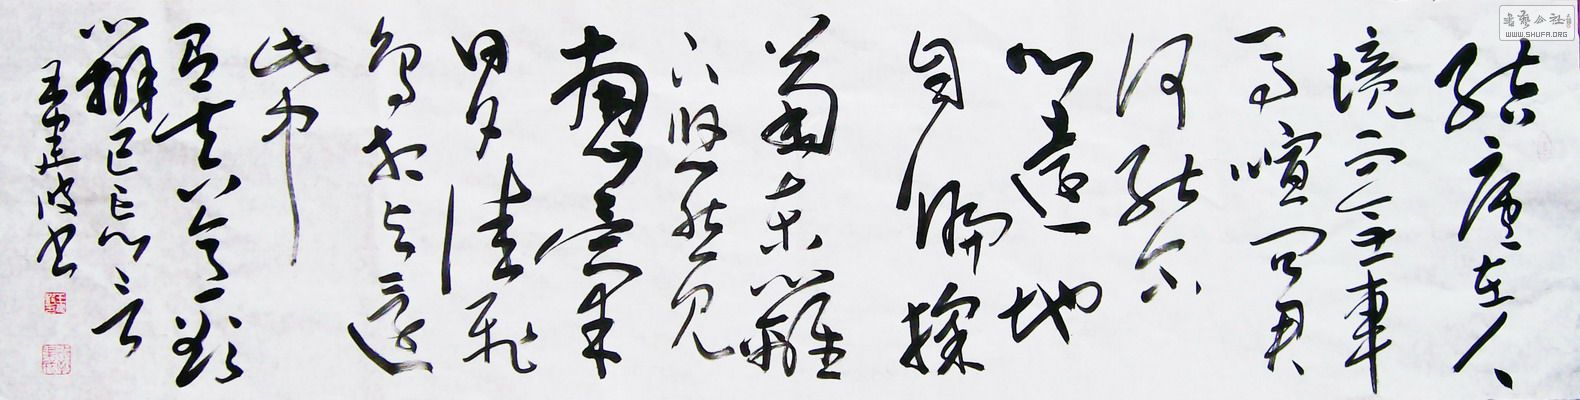 結廬在人
境而無車
馬喧問君
何能尔
心遠地
自偏採
菊東籬
下悠然見
南山山氣
日夕佳飛
鳥相與還
此中
有真意欲
辨已忘言
王建波书
書藝公社
WWW.SHUFA.ORG